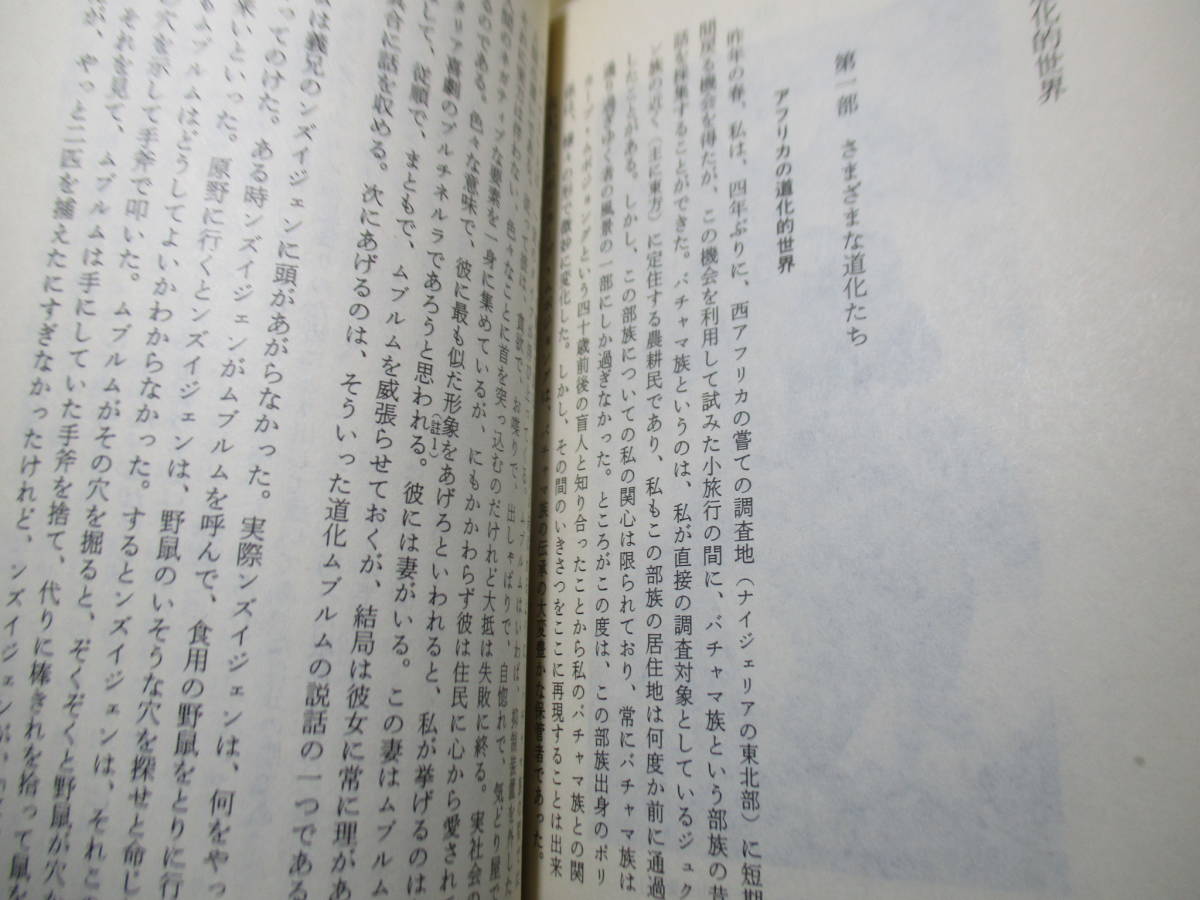 化的世界
第一部 さまざまな道化たち
アフリカの道化的世界
昨年の春、私は、四年ぶりに、西アフリカの嘗ての調査地（ナイジェリアの東北部）に短期
間戻る機会を得たが、この機会を利用して試みた小旅行の間に、バチャマ族という部族の昔
話を採集することができた。バチャマ族というのは、私が直接の調査対象としているジュク
ン族の近く（主に東方）に定住する農耕民であり、私もこの部族の居住地は何度か前に通過
したことがある。しかし、この部族についての私の関心は限られており、常にバチャマ族は
通り過ぎゆく者の風景の一部にしか過ぎなかった。ところがこの度は、この部族出身のポリ
という四十歳前後の盲人と知り合ったことから私のバチャマ族との関
様々の形で微妙に変化した。しかし、その間のいきさつをここに再現することは出来
マ族の伝承の大変豊かな保管者であった。
貪欲で、お喋りで、出しゃばりで、自惚れで、気どり屋で
伴わない色々なことに首を突っ込むのだけれど大抵は失敗に終る。実社会の
人間のネガティブな要素を一身に集めているが、にもかかわらず彼は住民に心から愛されて
るのである。色々な意味で、彼に最も似た形象をあげろといわれると、私が挙げるのは
タリア喜劇のプルチネルラであろうと思われる。（註1）彼には妻がいる。この妻はムブルム
して、従順で、まともで、ムブルムを威張らせておくが、結局は彼女に常に理があ
合に話を収める。次にあげるのは、そういった道化ムブルムの説話の一つである
は義兄のンズイジェンに頭があがらなかった。実際ンズイジェンは、何をやっ
ってのけた。ある時ンズイジェンがムブルムを呼んで、食用の野鼠をとりに行
来いといった。原野に行くとンズイジェンは、野鼠のいそうな穴を探せと命じ
ムブルムはどうしてよいかわからなかった。するとンズイジェンは、それこ
穴を示して手斧で叩いた。ムブルムがその穴を掘ると、ぞくぞくと野鼠が穴
それを見て、ムブルムは手にしていた手斧を捨て、代りに棒きれを拾って鼠を
が、やっと二匹を捕えたにすぎなかったけれど、ンズイジェンが、